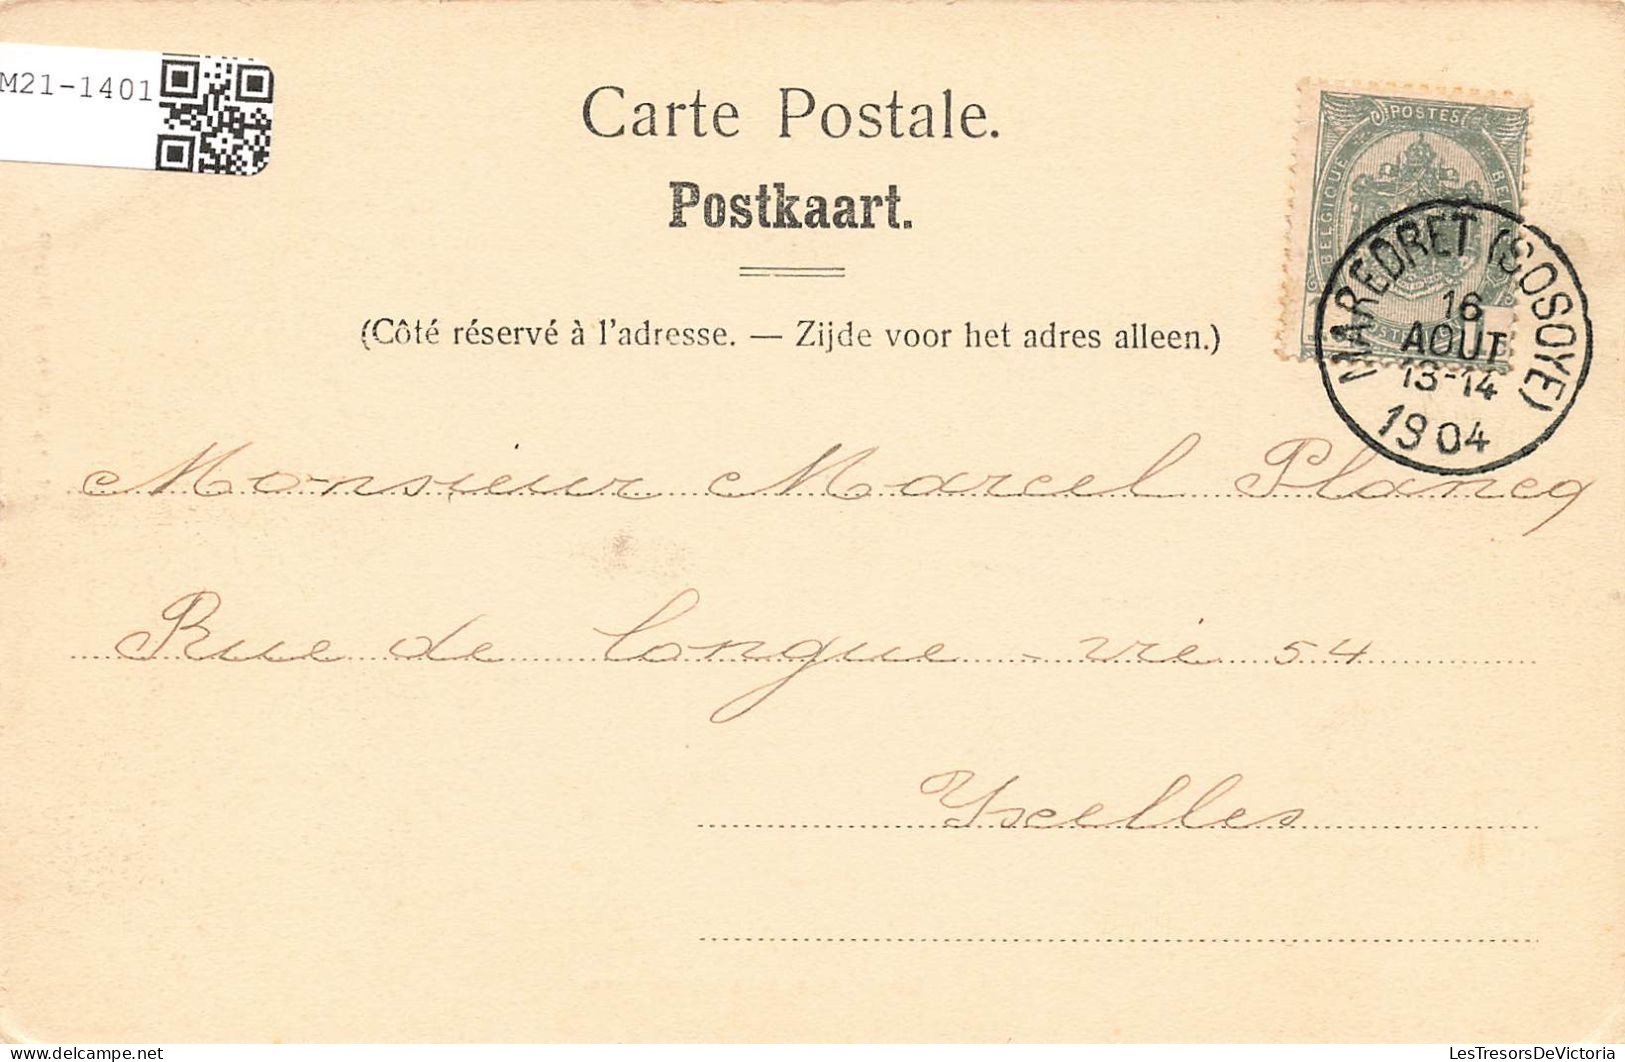 M21-1401
Carte Postale.
Postkaart.
(Côté réservé à l'adresse. — Zijde voor het adres alleen.)
POSTES
BELGIQUE
MAREDRET (SOSOYE)
16
AOUT
13-14
1904
Monsieur Marcel Plancq
Rue de longue-vie 54
Yxelles
delcampe.net
LesTresorsDeVictoria